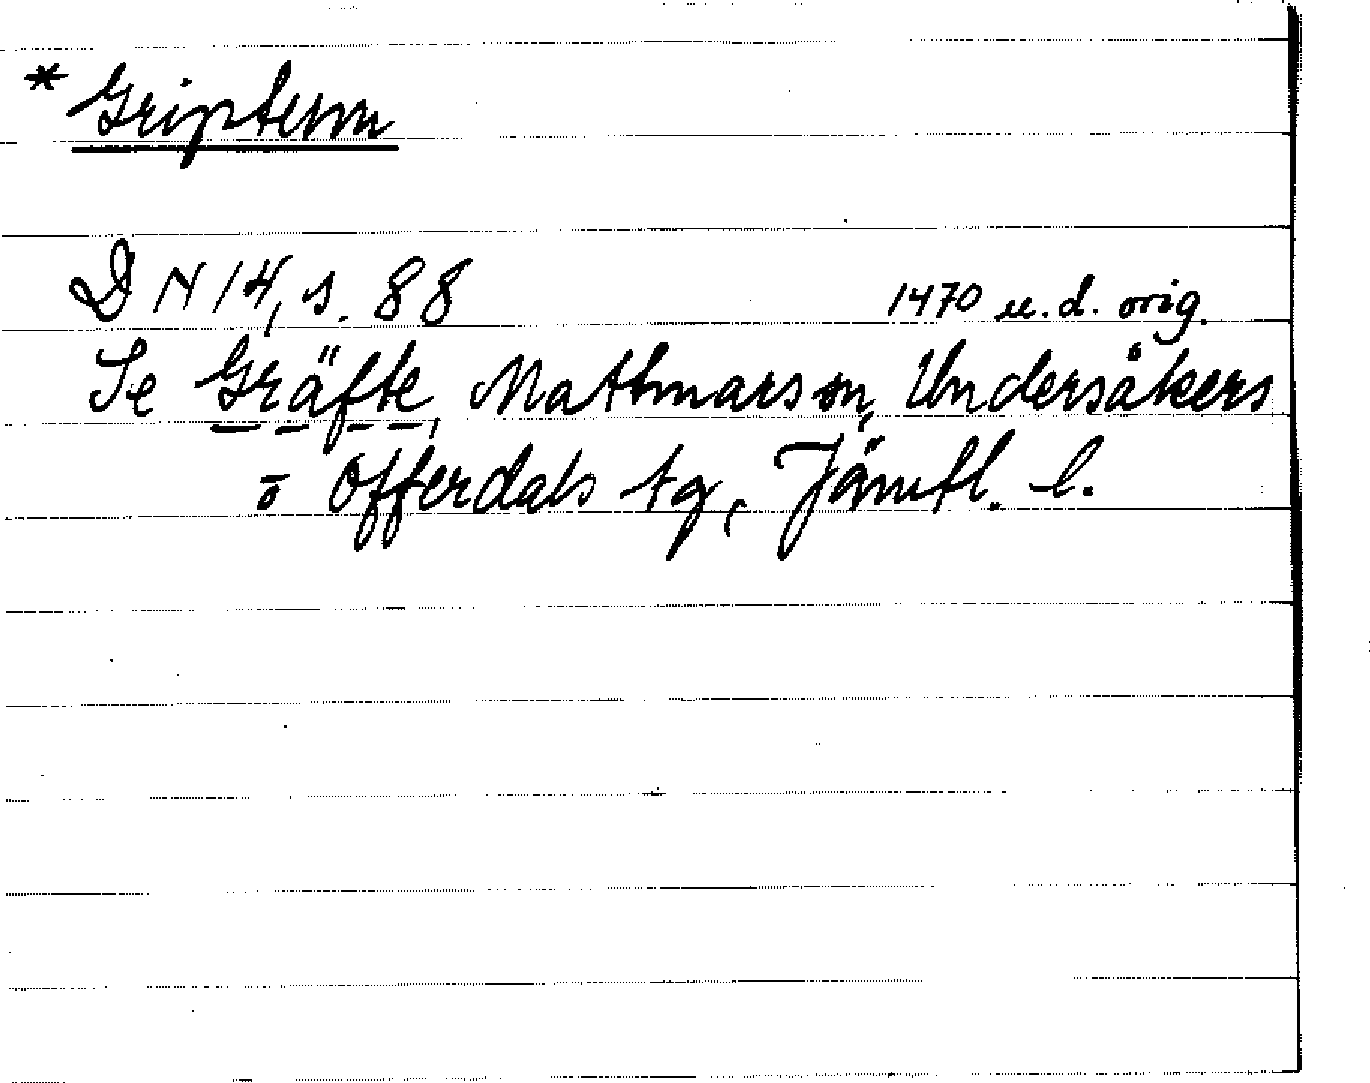 * Gripterm
DN 14, s. 88 1470 u.d. orig.
Se Gräfte, Mattmars sn, Undersåkers
o Offerdals tg, Jämtl. l.